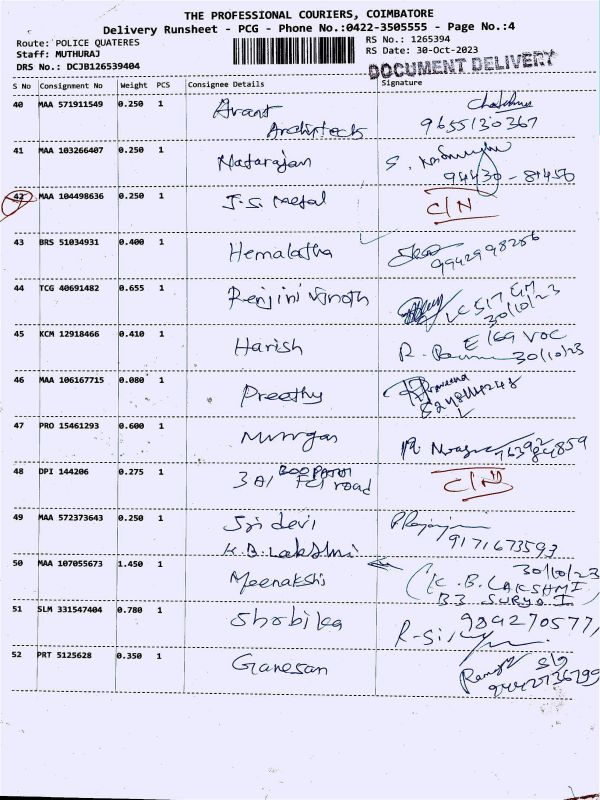 THE PROFESSIONAL COURIERS, COIMBATORE
Delivery Runsheet - PCG - Phone No.:0422-3505555 - Page No.:4
Route: POLICE QUATERES RS No.: 1265394
Staff: MUTHURAJ RS Date: 30-Oct-2023
DRS No.: DCJB126539404 DOCUMENT DELIVERY
S No Consignment No Weight PCS Consignee Details Signature
40 MAA 571911549 0.250 1 Avant
Architects 9655130367
41 MAA 103266407 0.250 1 Natarajan S.
94430-81450
42 MAA 104498636 0.250 1 J.S. Metal C/N
43 BRS 51034931 0.400 1 Hemalatha
9942998286
44 TCG 40691482 0.655 1 Renjini Vinoth LC 517 GM
30/10/23
45 KCM 12918466 0.410 1 Harish E/69 VOC
R. 30/10/23
46 MAA 106167715 0.080 1 Preethy Praveena
47 PRO 15461293 0.600 1 Murugan
48 DPI 144206 0.275 1 3A1 BOOPATHI
FCI road C/N
49 MAA 572373643 0.250 1 Sri devi
9171673593
K.B. Lakshmi
50 MAA 107055673 1.450 1 Meenakshi 30/10/23
(K.B. LAKSHMI
B3 SURYA I)
51 SLM 331547404 0.780 1 Shobika 984270577,
52 PRT 5125628 0.350 1 Ganesan S/9
9442736799